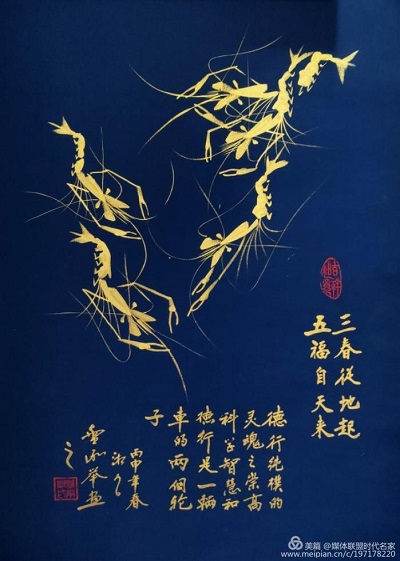 三春從地起
五福自天来
德行纯樸的
灵魂之崇高
科学智慧和
德行是一輌
車的两個轮
子
丙申年春
美篇 @媒体联盟时代名家
www.meipian.cn/c/197178220